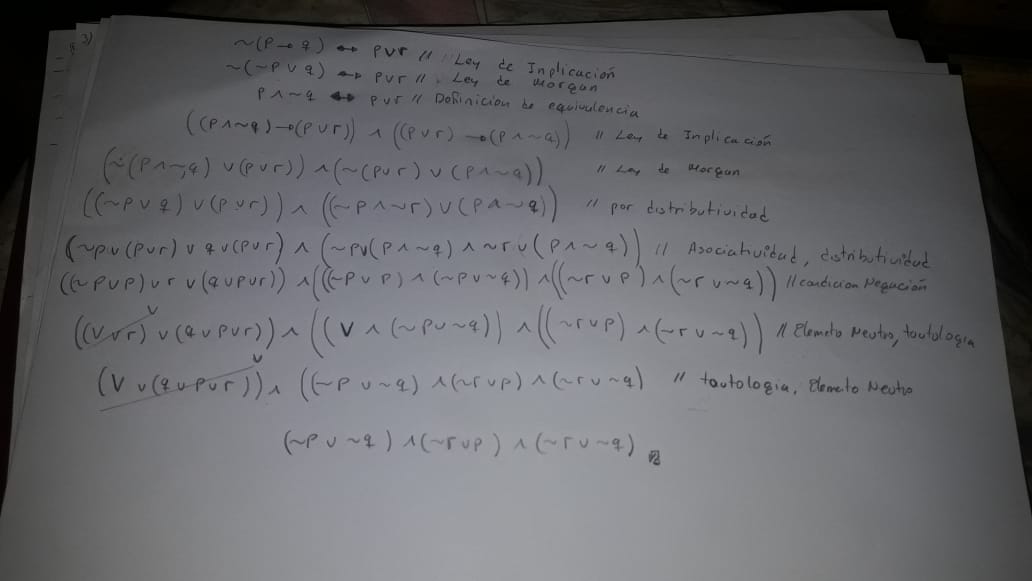 3)
~(P→q) ↔ pvr // Ley de Inplicación
~(~P v q) ↔ pvr // Ley de Morgan
P∧~q ↔ pvr // Definicion de equivalencia
((P∧~q)→(PVr)) ∧ ((PVr)→(P∧~q)) // Ley de Inplicación
(~(P∧~q) v(pvr)) ∧(~(pvr) v (P∧~q)) // Ley de Morgan
((~P v q) v(pvr)) ∧ ((~P∧~r)v(P∧~q)) // por distributividad
(~pv(pvr) v qv(pvr) ∧ (~pv(P∧~q) ∧ ~r v(P∧~q)) // Asociatividad, distributividad
((~PvP)vrv(qvpvr)) ∧(((~PvP)∧(~pv~q)) ∧((~rvp)∧(~rv~q)) // condicion Negación
((Vvr) v(qvpvr)) ∧ ((V∧(~pv~q)) ∧((~rvp)∧(~rv~q)) // Elemeto Neutro, tautologia
V
(Vv(qvpvr))∧ ((~pv~q)∧(~rvp)∧(~rv~q) // tautologia, Elemeto Neutro
V
(~pv~q)∧(~rvp)∧(~rv~q)